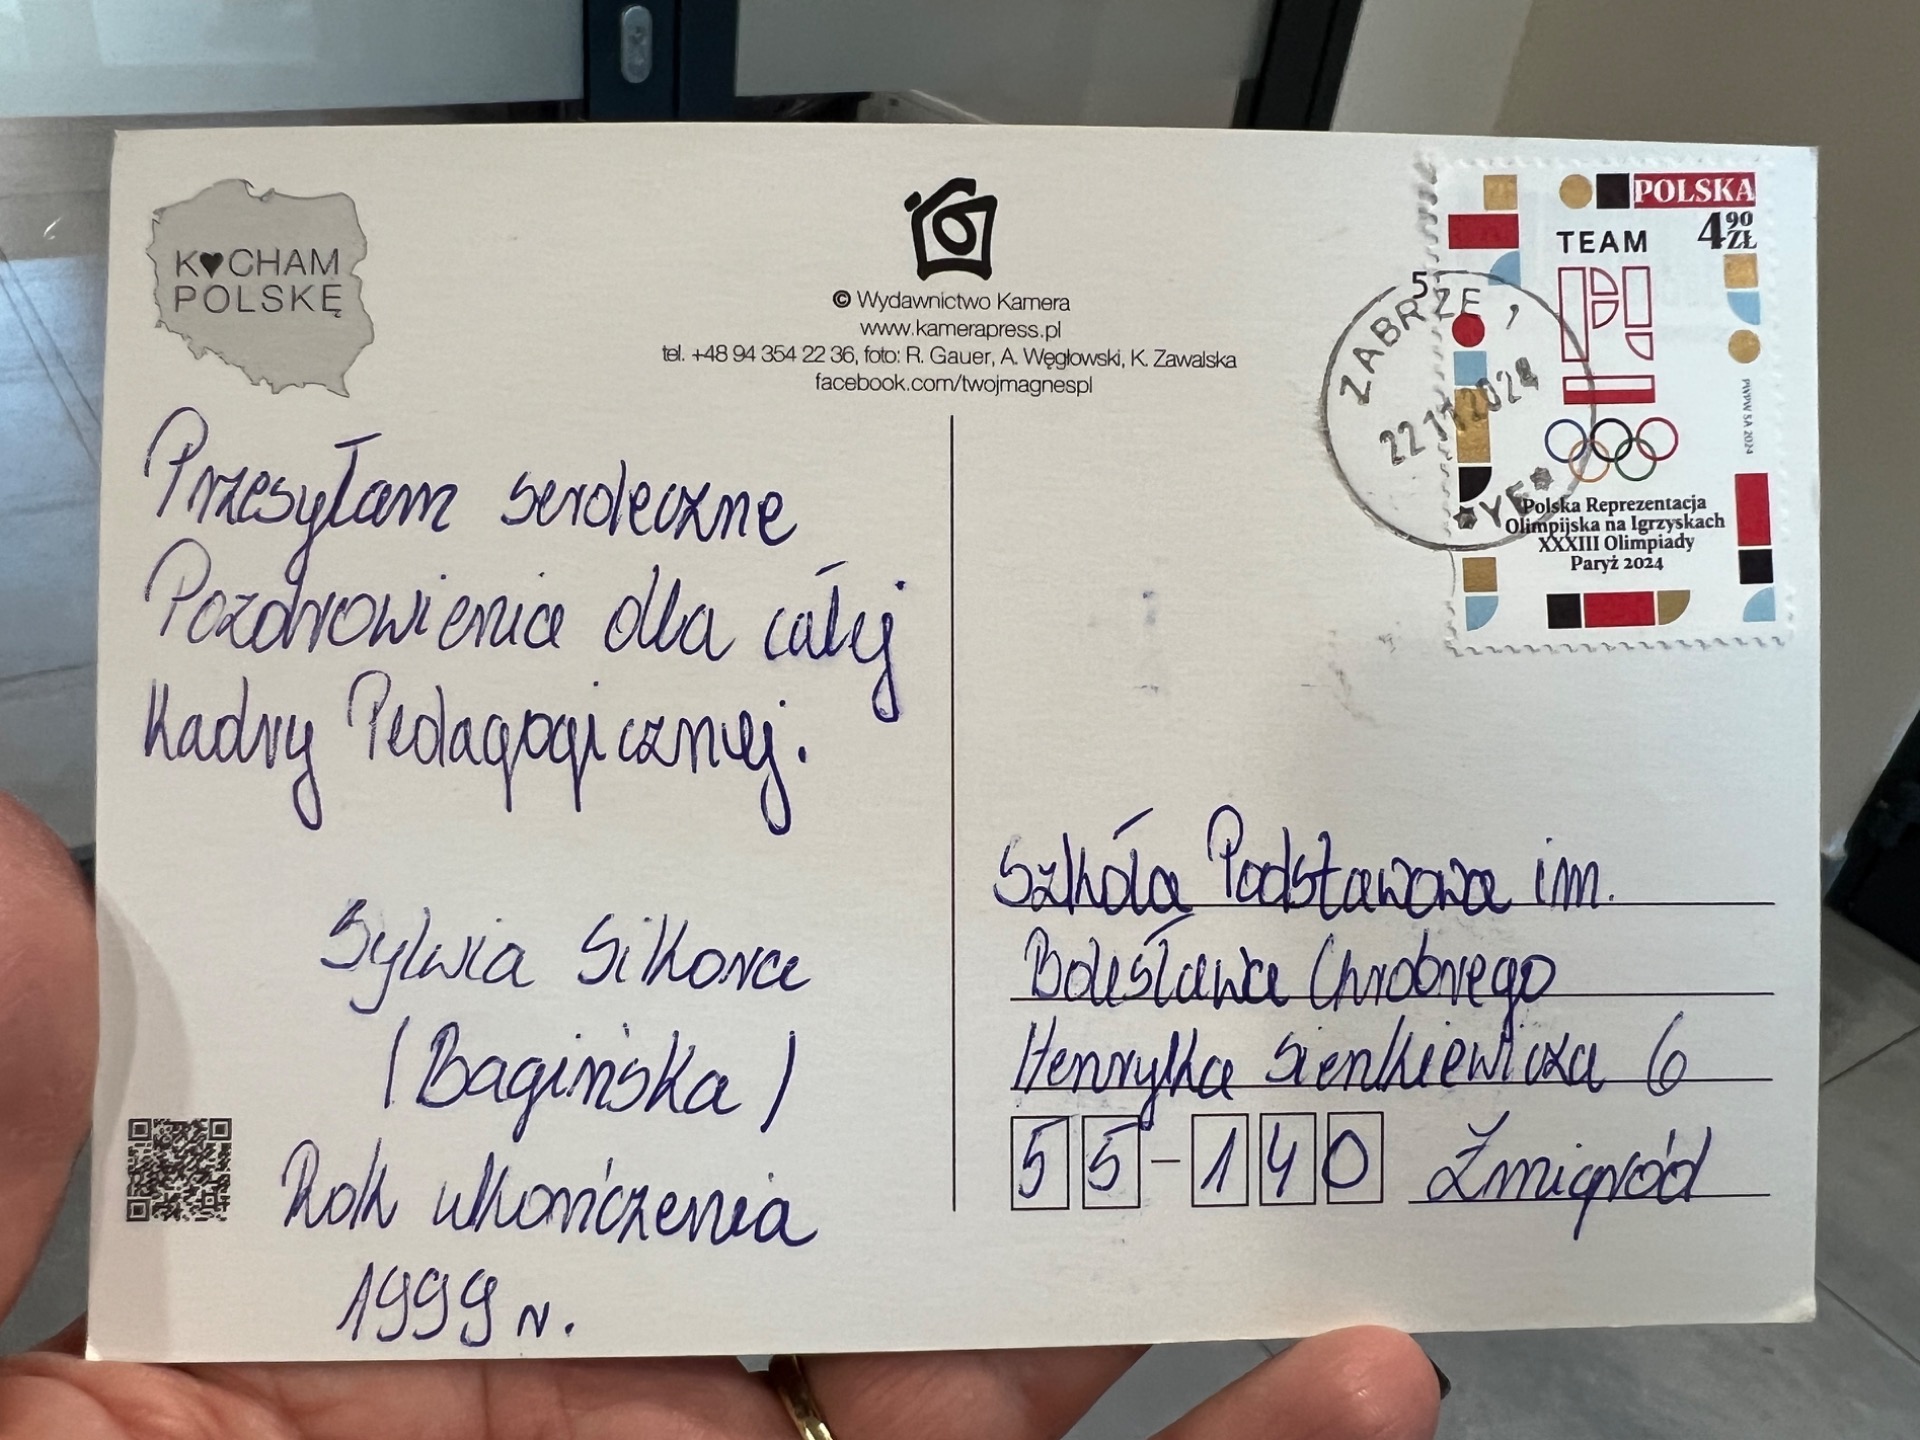 K♥CHAM
POLSKĘ
© Wydawnictwo Kamera
www.kamerapress.pl
tel. +48 94 354 22 36, foto: R. Gauer, A. Węgłowski, K. Zawalska
facebook.com/twojmagnespl
POLSKA
4 90 ZŁ
TEAM
PL
PWPW SA 2024
Polska Reprezentacja
Olimpijska na Igrzyskach
XXXIII Olimpiady
Paryż 2024
ZABRZE 5
22 2024
Przesyłam serdeczne
Pozdrowienia dla całej
Kadry Pedagogicznej.
Sylwia Sikora
(Bagińska)
Rok ukończenia
1999 r.
Szkóła Podstawowa im.
Bolesława Chrobrego
Henryka Sienkiewicza 6
55-140 Żmigród